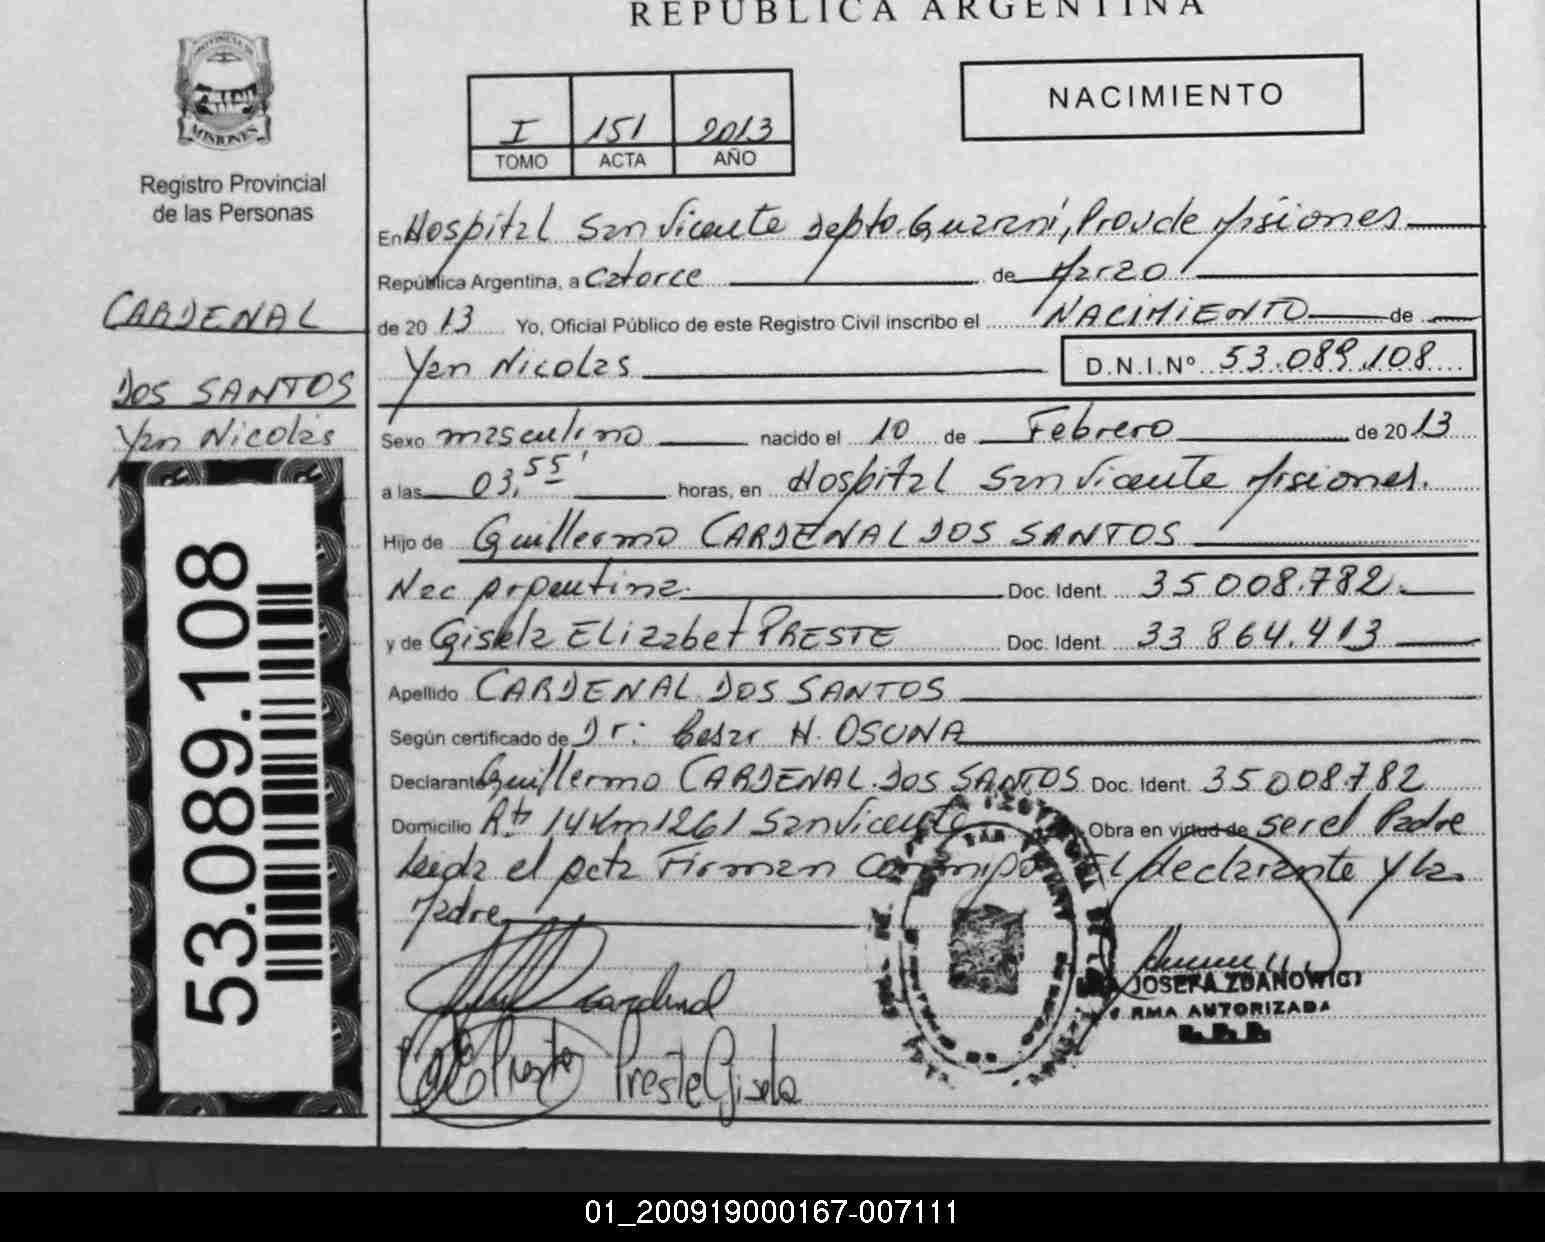 REPÚBLICA ARGENTINA
PROVINCIA DE
MISIONES
Registro Provincial
de las Personas
I 151 2013
TOMO ACTA AÑO
NACIMIENTO
En Hospital San Vicente Depto. Guaraní, Prov de Misiones
República Argentina, a Catorce de Marzo
de 2013 Yo, Oficial Público de este Registro Civil inscribo el NACIMIENTO de
Yan Nicolas D.N.I.Nº 53.089.108
CARDENAL
DOS SANTOS
Yan Nicolas
Sexo masculino nacido el 10 de Febrero de 2013
a las 03,55' horas, en Hospital San Vicente Misiones.
Hijo de Guillermo CARDENAL DOS SANTOS
Nac Argentina. Doc. Ident. 35008.782.
y de Gisela Elizabet PRESTE Doc. Ident. 33 864.413
Apellido CARDENAL DOS SANTOS
Según certificado de Dr: Cesar H. OSUNA
Declarante Guillermo CARDENAL DOS SANTOS Doc. Ident. 35008.782
Domicilio Rta 14 Km 1261 San Vicente Obra en virtud de ser el Padre
Leida el acta Firman conmigo El declarante y la
Madre
53.089.108
Cardenal
Preste Preste Gisela
JOSEFA ZDANOWICZ
FIRMA AUTORIZADA
01_200919000167-007111